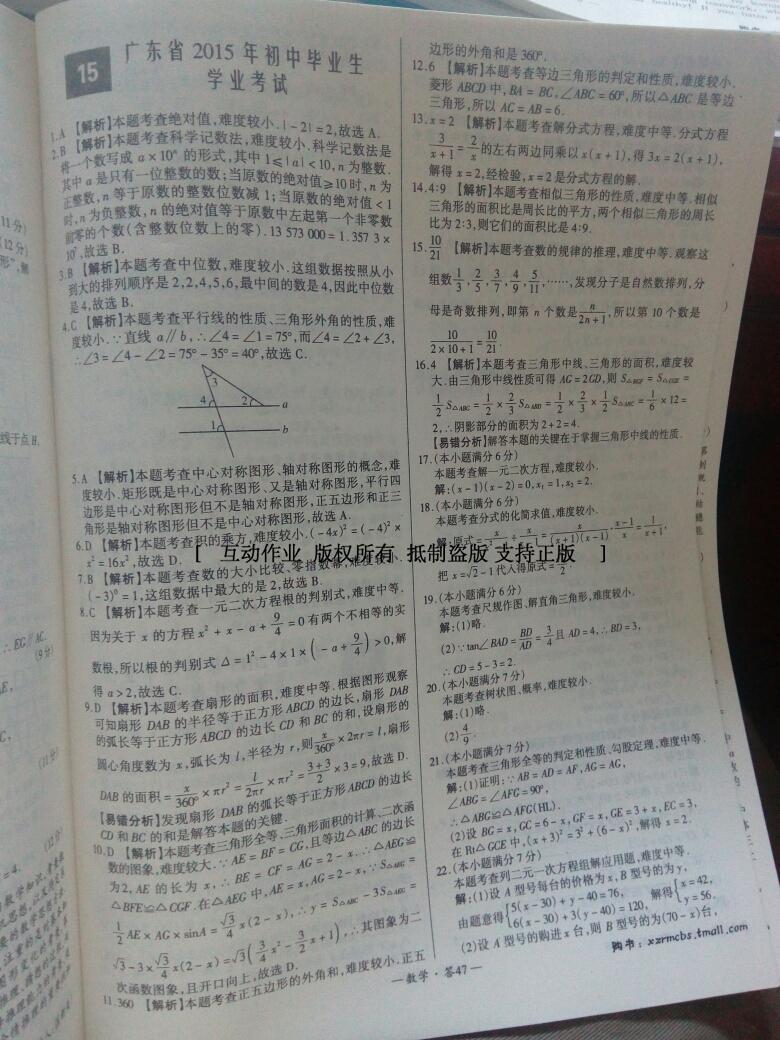 15
广东省 2015 年初中毕业生
学业考试
1.A 【解析】本题考查绝对值,难度较小.|-2|=2,故选 A.
2.B 【解析】本题考查科学记数法,难度较小.科学记数法是
将一个数写成 a×10ⁿ 的形式,其中 1≤|a|<10,n 为整数.
其中 a 是只有一位整数的数;当原数的绝对值≥10时,n 为
正整数,n 等于原数的整数位数减 1;当原数的绝对值<1
时,n 为负整数,n 的绝对值等于原数中左起第一个非零数
前零的个数(含整数位数上的零).13 573 000=1.357 3×
10⁷,故选 B.
3.B 【解析】本题考查中位数,难度较小.这组数据按照从小
到大的排列顺序是 2,2,4,5,6,最中间的数是4,因此中位数
是4,故选 B.
4.C 【解析】本题考查平行线的性质、三角形外角的性质,难
度较小.∵直线 a∥b,∴∠4=∠1=75°,而∠4=∠2+∠3,
∴∠3=∠4-∠2=75°-35°=40°,故选 C.
3
4 2 a
1 b
5.A 【解析】本题考查中心对称图形、轴对称图形的概念,难
度较小.矩形既是中心对称图形、又是轴对称图形,平行四
边形是中心对称图形但不是轴对称图形,正五边形和正三
角形是轴对称图形但不是中心对称图形,故选 A.
6.D 【解析】本题考查积的乘方,难度较小.(-4x)²=(-4)²×
x²=16x²,故选 D.
7.B 【解析】本题考查数的大小比较、零指数幂,难度较小.
(-3)⁰=1,这组数据中最大的是 2,故选 B.
8.C 【解析】本题考查一元二次方程根的判别式,难度中等.
因为关于 x 的方程 x²+x-a+9/4=0 有两个不相等的实
数根,所以根的判别式 Δ=1²-4×1×(-a+9/4)>0,解
得 a>2,故选 C.
9.D 【解析】本题考查扇形的面积,难度中等.根据图形观察
可知扇形 DAB 的半径等于正方形 ABCD 的边长,扇形 DAB
的弧长等于正方形 ABCD 的边长 CD 和 BC 的和,设扇形的
圆心角度数为 x,弧长为 l,半径为 r,则 x/360°×2πr=l,扇形
DAB 的面积=x/360°×πr²=l/2πr×πr²=3+3/2×3=9,故选 D.
【易错分析】发现扇形 DAB 的弧长等于正方形 ABCD 的边长
CD 和 BC 的和是解答本题的关键.
10.D 【解析】本题考查三角形全等、三角形面积的计算、二次函
数的图象,难度较大.∵AE=BF=CG,且等边△ABC 的边长
为2,AE 的长为 x,∴BE=CF=AG=2-x.∴△AEG≌
△BFE≌△CGF.在△AEG 中,AE=x,AG=2-x,∵S△AEG=
1/2 AE×AG×sinA=√3/4 x(2-x),∴y=S△ABC-3S△AEG=
√3-3×√3/4 x(2-x)=√3(3/4 x²-3/2 x+1),∴其图象为二
次函数图象,且开口向上,故选 D.
11.360 【解析】本题考查正五边形的外角和,难度较小.正五
边形的外角和是 360°.
12.6 【解析】本题考查等边三角形的判定和性质,难度较小.
菱形 ABCD 中,BA=BC,∠ABC=60°,所以△ABC 是等边
三角形,所以 AC=AB=6.
13.x=2 【解析】本题考查解分式方程,难度中等.分式方程
3/x+1=2/x 的左右两边同乘以 x(x+1),得 3x=2(x+1),
解得 x=2,经检验,x=2 是分式方程的解.
14.4:9 【解析】本题考查相似三角形的性质,难度中等.相似
三角形的面积比是周长比的平方,两个相似三角形的周长
比为 2:3,则它们的面积比是 4:9.
15.10/21 【解析】本题考查数的规律的推理,难度中等.观察这
组数 1/3,2/5,3/7,4/9,5/11,……,发现分子是自然数排列,分
母是奇数排列,即第 n 个数是 n/2n+1,所以第 10 个数是
10/2×10+1=10/21.
16.4 【解析】本题考查三角形中线、三角形的面积,难度较
大.由三角形中线性质可得 AG=2GD,则 S△BGF=S△CGE=
1/2 S△ABG=1/2×2/3 S△ABD=1/2×2/3×1/2 S△ABC=1/6×12=
2,∴阴影部分的面积为 2+2=4.
【易错分析】解答本题的关键在于掌握三角形中线的性质.
17.(本小题满分 6 分)
本题考查解一元二次方程,难度较小.
解:(x-1)(x-2)=0,x₁=1,x₂=2.
18.(本小题满分 6 分)
本题考查分式的化简求值,难度较小.
解:原式=x/(x+1)(x-1)·x-1/x=1/x+1,
把 x=√2-1 代入得原式=√2/2.
19.(本小题满分 6 分)
本题考查尺规作图、解直角三角形,难度较小.
解:(1)略.
(2)∵tan∠BAD=BD/AD=3/4 且 AD=4,∴BD=3,
∴CD=5-3=2.
20.(本小题满分 7 分)
本题考查树状图、概率,难度较小.
解:(1)略.
(2)4/9.
21.(本小题满分 7 分)
本题考查三角形全等的判定和性质、勾股定理,难度中等.
解:(1)证明:∵AB=AD=AF,AG=AG,
∠ABG=∠AFG=90°,
∴△ABG≌△AFG(HL).
(2)设 BG=x,GC=6-x,GF=x,GE=3+x,EC=3,
在 Rt△GCE 中,(x+3)²=3²+(6-x)²,解得 x=2.
22.(本小题满分 7 分)
本题考查列二元一次方程组解应用题,难度中等.
解:(1)设 A 型号每台的价格为 x,B 型号的为 y,
由题意得{5(x-30)+y-40=76, 6(x-30)+3(y-40)=120, 解得{x=42, y=56.
(2)设 A 型号的购进 x 台,则 B 型号的为(70-x)台,
购书:xzrmcbs.tmall.com
—数学·答47—
[ 互动作业 版权所有 抵制盗版 支持正版 ]